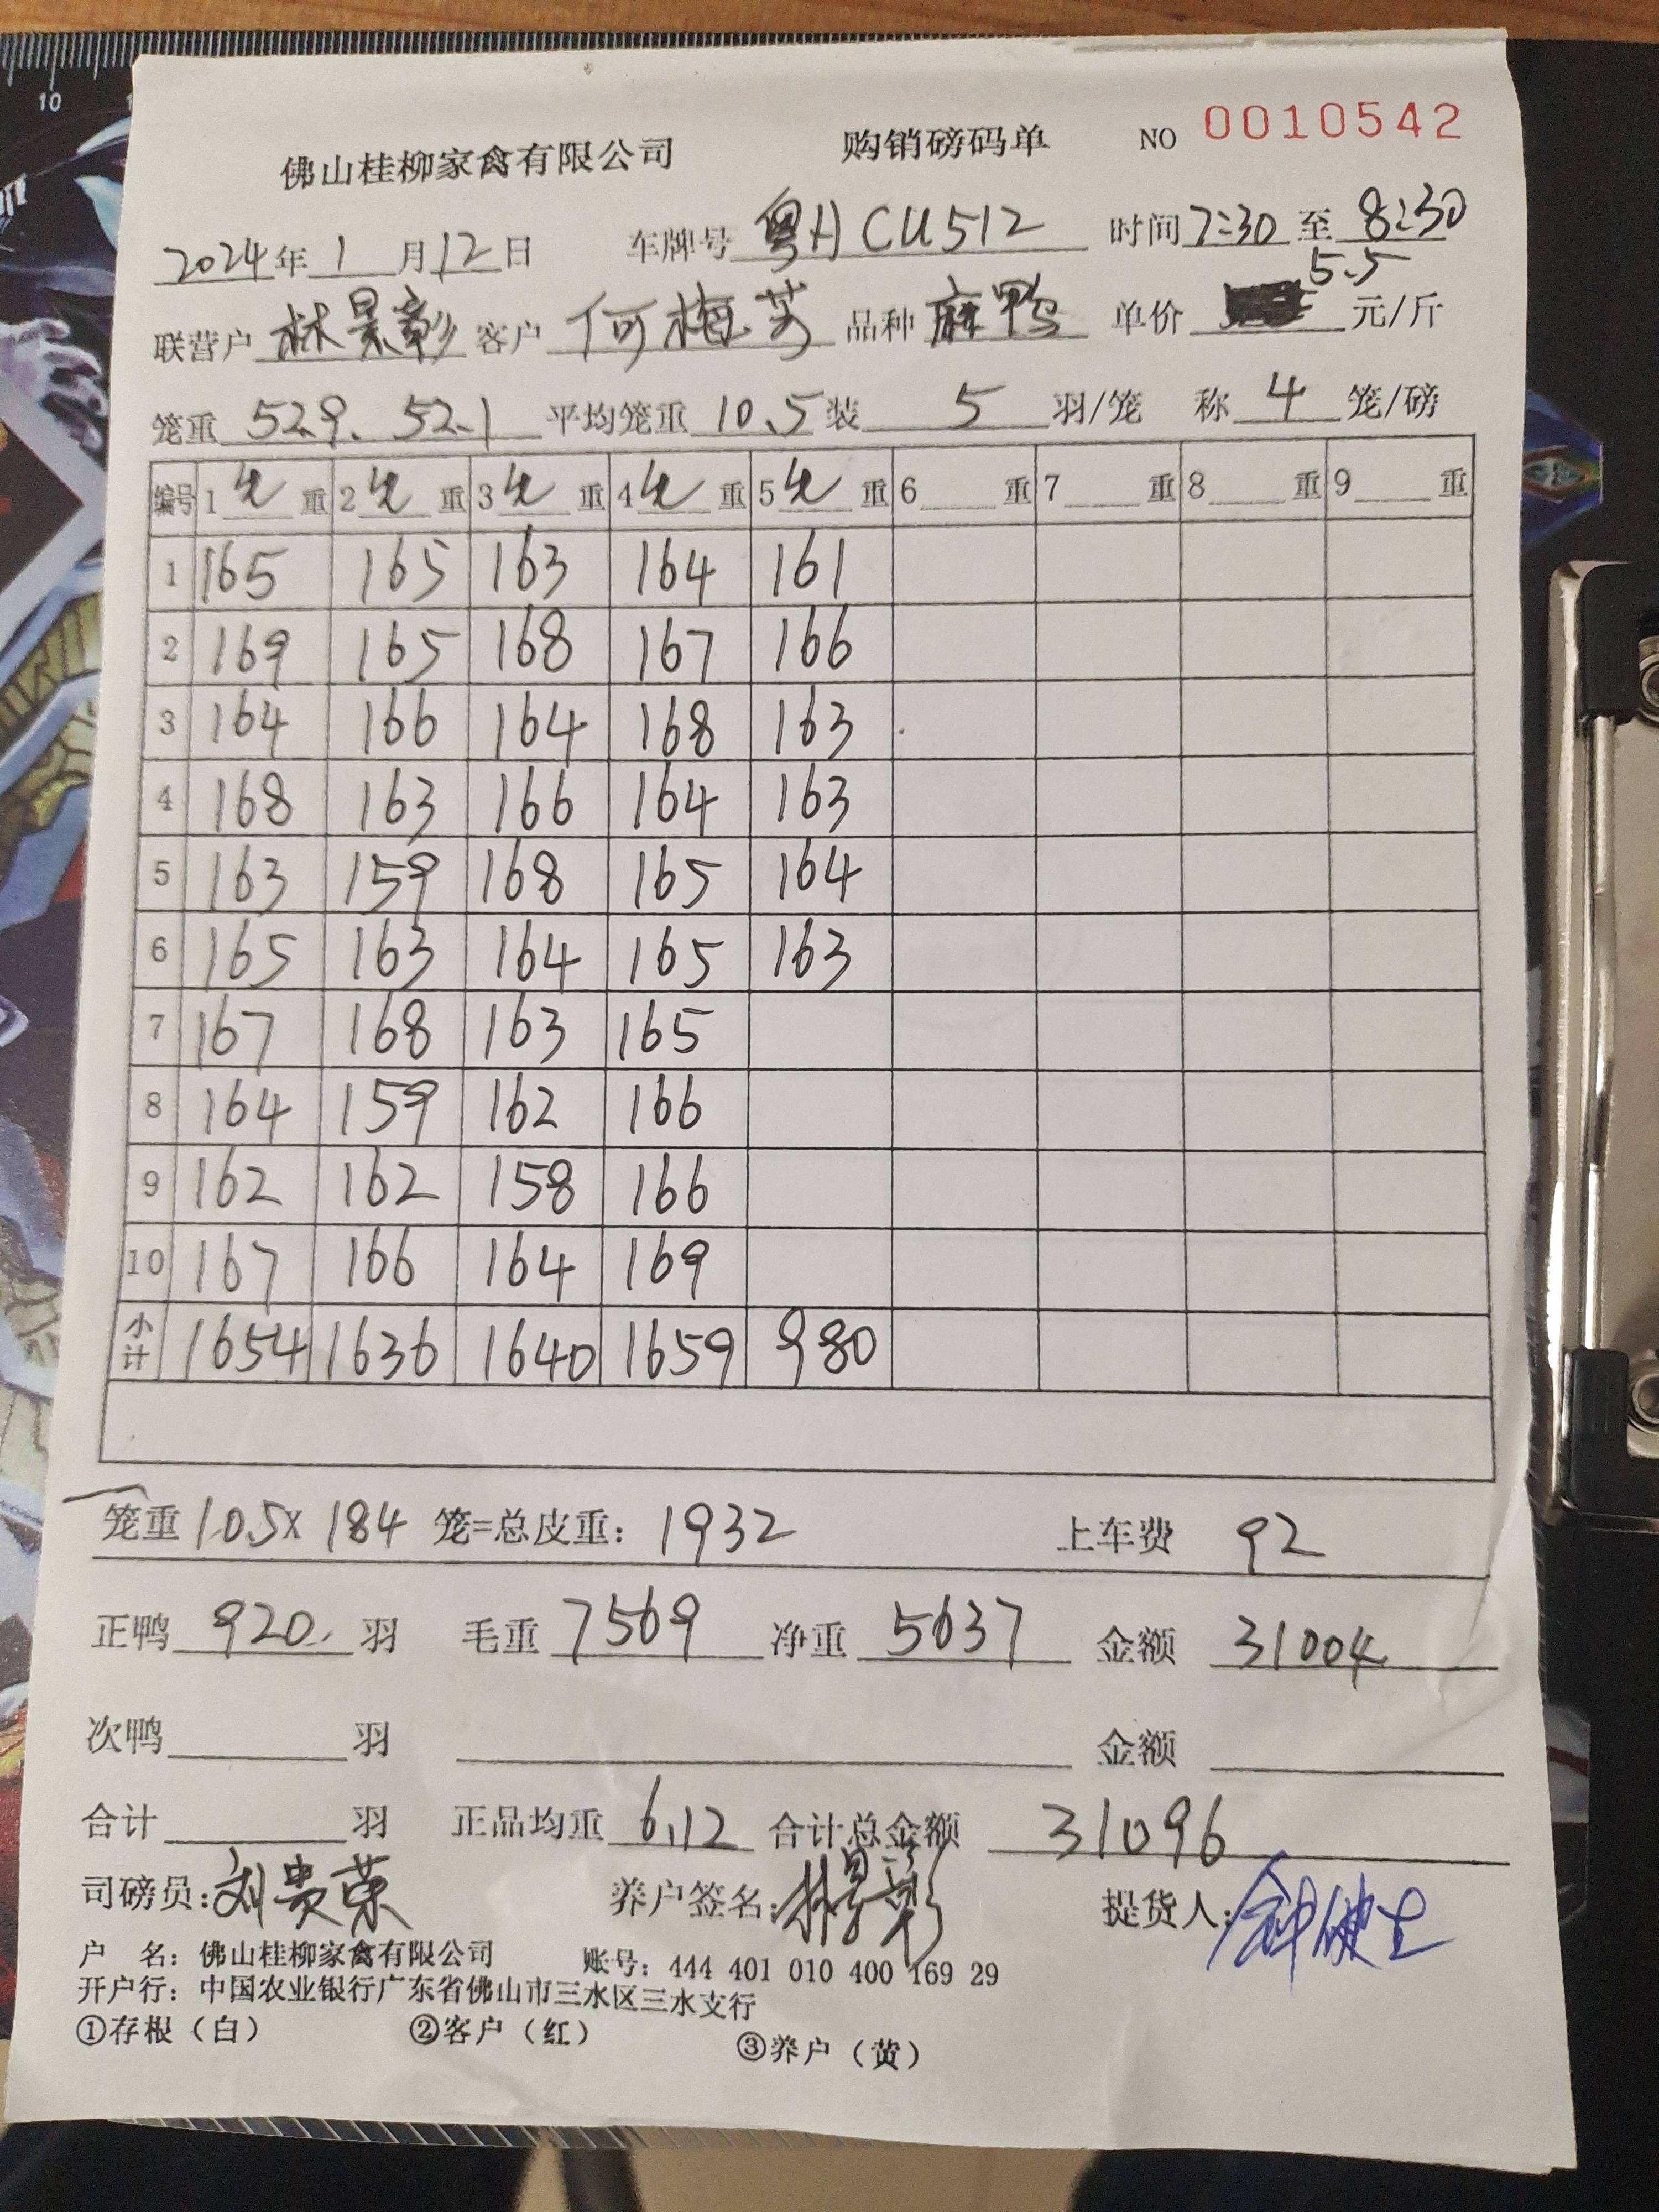 10
佛山桂柳家禽有限公司 购销磅码单 NO 0010542
2024年1月12日 车牌号 粤H CU512 时间 7:30 至 8:30
5.5
联营户 林景彰 客户 何梅芳 品种 麻鸭 单价 元/斤
笼重 52.9、52.1 平均笼重 10.5 装 5 羽/笼 称 4 笼/磅
编号 1 重 2 重 3 重 4 重 5 重 6 重 7 重 8 重 9 重
1 165 165 163 164 161
2 169 165 168 167 166
3 164 166 164 168 163
4 168 163 166 164 163
5 163 159 168 165 164
6 165 163 164 165 163
7 167 168 163 165
8 164 159 162 166
9 162 162 158 166
10 167 166 164 169
小计 1654 1636 1640 1659 980
笼重 10.5X 184 笼=总皮重: 1932 上车费 92
正鸭 920 羽 毛重 7569 净重 5637 金额 31004
次鸭 羽 金额
合计 羽 正品均重 6.12 合计总金额 31096
司磅员: 刘贵荣 养户签名: 林景彰 提货人:
户 名: 佛山桂柳家禽有限公司 账号: 444 401 010 400 169 29
开户行: 中国农业银行广东省佛山市三水区三水支行
①存根（白） ②客户（红） ③养户（黄）